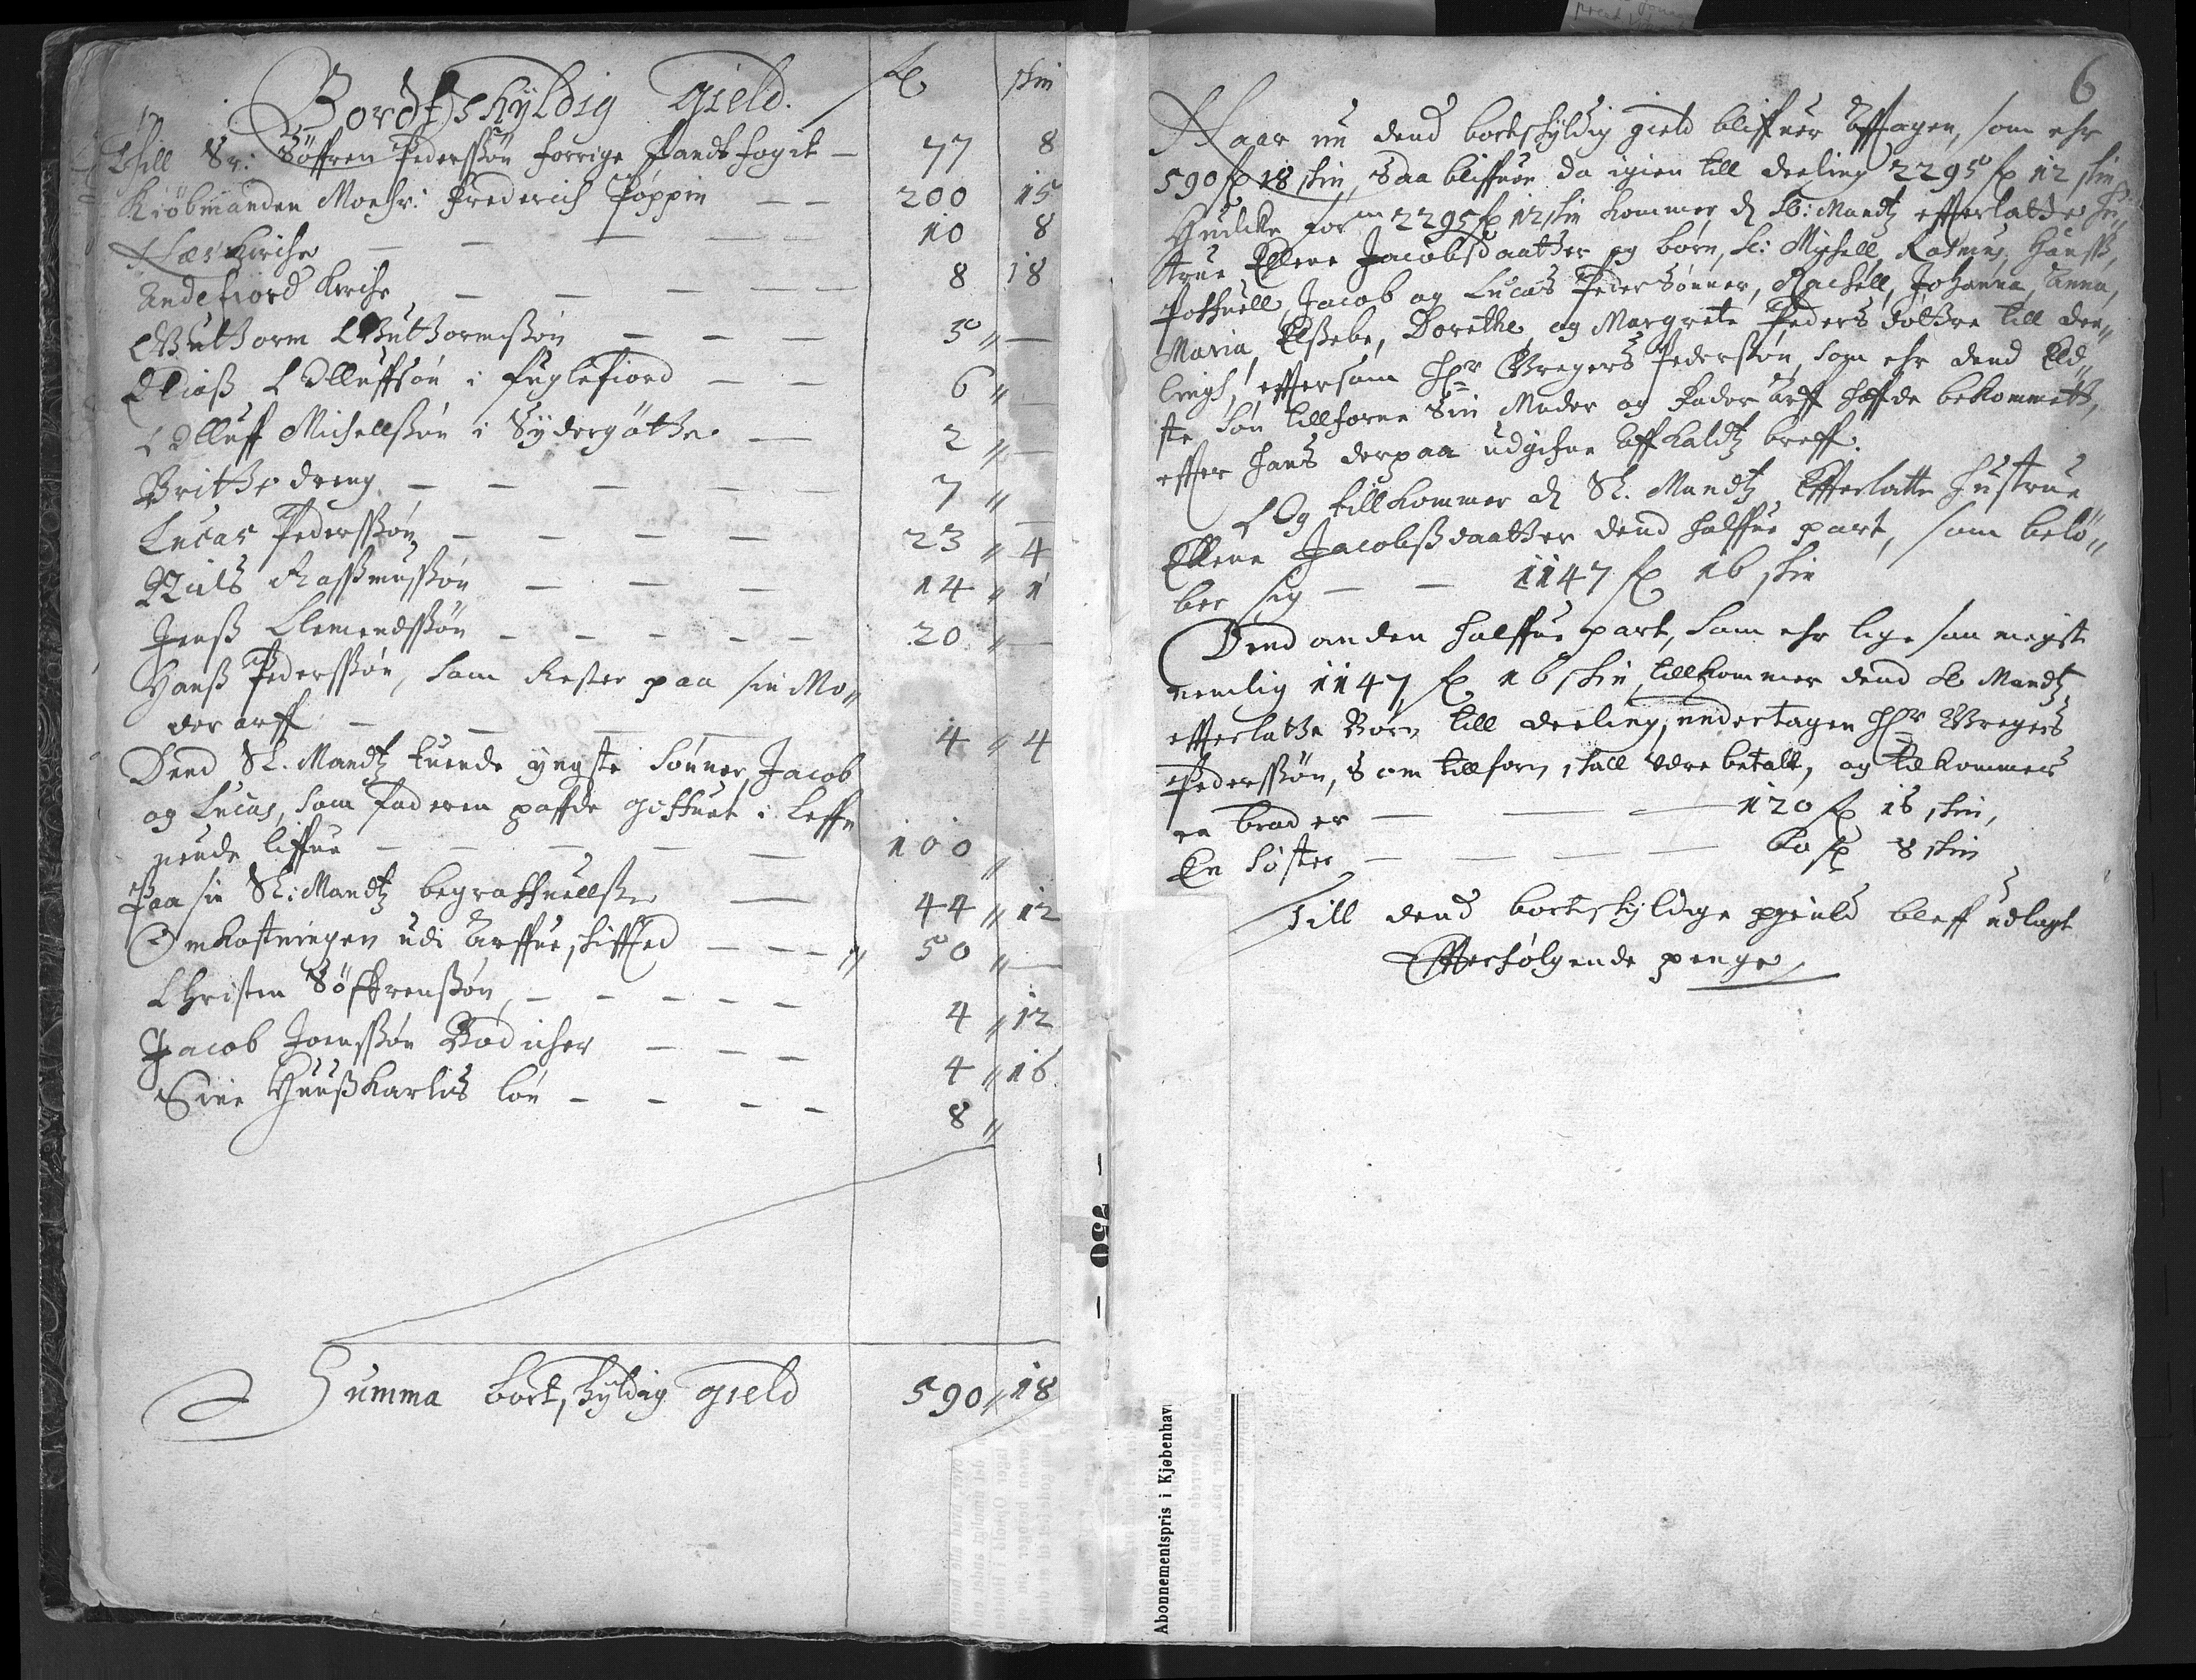 Bordtskÿldig gield. fl skin
Thill Sr: Söffren Pederssön forrige Landtfogit — 77 8
Kiöbmanden Monsr: Frederich Poppin — — 200 15
Næs kirche — — — — 10 8
Andefiord kirche — — — — 8 18
Gutthorm Gutthormssön — — — 5 „ —
Eliaß Olluffsön i fuglefiord — — 6 „ —
Olluff Michellssön i Sÿdergötthe — 2 „ —
Britthe dreng — — — — — 7 „ —
Lucas Pederssön — — — — 23 „ 4
Niels Rassmussön — — — 14 „ 1
Jenß Clemendssön — — — — — 20 „ —
Hanß Pederssön, som Rester paa sin Mo„
der arff — — — — 4 „ 4
Dend Sl. Mandtz tuende yngste sönner, Jacob
og Lucas, som Faderen haffde giffuet i leff„
nende liffue — — — — — 100 „
Paa sin Sl: Mandtz begraffuellse — 44 „ 12
Omkostningen udi Arffue skiffted — — — „ 50 „ —
Christen Söffrenssön — — — — — 4 „ 12
Jacob Joenssön Bödicher — — — — 4 „ 16
Sine Huußkarlis lön — — — — 8 „
Summa bortskÿldig gield 590 „ 18
6
Naar nu dend bortskÿldig gield bliffuer afftagen, som ehr
590 fl 18 skin, Saa bliffuer da igien till deeling 2295 fl 12 skin
Huilcke forn 2295 fl 12 skin kommer dl Sl: Mandtz effterlatte Hu„
strue Ellene Jacobsdaatter og börn, Sl: Michell, Rasmus, Hanß,
Pothuell, Jacob og Lucas Peder Sönner, Rachell, Johanna, Anna,
Maria, Elßebe, Dorethe, og Margrete Peders döttre till dee„
lingh, effttersom Hr Gregers Pederssön, som ehr dend Eld„
ste sön tillforne Sin Moder og Fader arff haffde bekommett,
effter hans derpaa udgifne affkaldtz breff.
Og tillkommer dl Sl. Mandtz Effterlatte Hustrue
Ellene Jacobßdaatter dend halffue part, som belö„
ber sig — — 1147 fl 16 skin
Dend anden halffue part, som ehr lige saa megit
nemlig 1147 fl 16 skin, tillkommer dend Sl Mandtz
effterlatte Börn till deeling, undertagen Hr Gregers
Pederssön, som tillforn skall være betalt, og tilkommer
en broder — — — 120 fl 16 skin,
En söster — — — — 60 fl 8 skin
Till dend bortskÿldige gield bleff udlagt
Effterfölgende penge
Abonnementspris i Kjøbenhavn